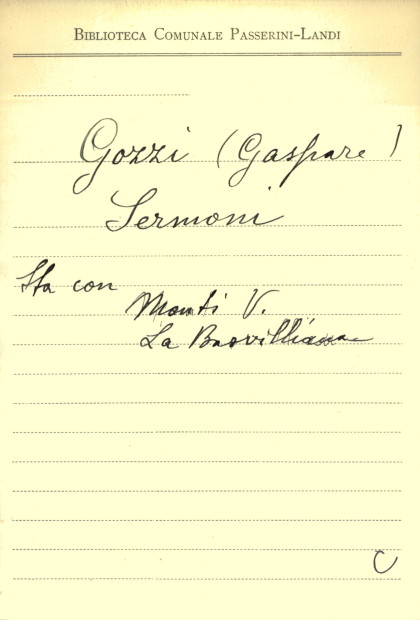 BIBLIOTECA COMUNALE PASSERINI-LANDI
Gozzi (Gaspare)
Sermoni
Sta con
Monti V.
La Basvilliana
C